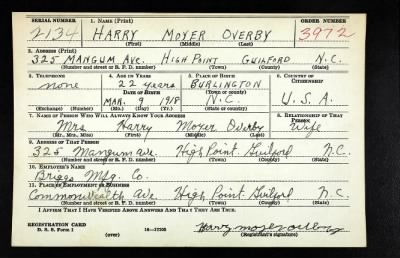 SERIAL NUMBER 1. NAME (Print) ORDER NUMBER
2134 HARRY MOYER OVERBY 3972
(First) (Middle) (Last)
2. ADDRESS (Print)
325 MANGUM AVE. HIGH POINT GUILFORD N.C.
(Number and street or R. F. D. number) (Town) (County) (State)
3. TELEPHONE 4. AGE IN YEARS 5. PLACE OF BIRTH 6. COUNTRY OF CITIZENSHIP
none 22 years BURLINGTON
DATE OF BIRTH (Town or county)
MAR. 9 1918 N.C. U.S.A.
(Exchange) (Number) (Mo.) (Day) (Yr.) (State or country)
7. NAME OF PERSON WHO WILL ALWAYS KNOW YOUR ADDRESS 8. RELATIONSHIP OF THAT PERSON
Mrs Harry Moyer Overby Wife
(Mr., Mrs., Miss) (First) (Middle) (Last)
9. ADDRESS OF THAT PERSON
325 Mangum ave. High Point Guilford N.C.
(Number and street or R. F. D. number) (Town) (County) (State)
10. EMPLOYER'S NAME
Briggs Mfg. Co.
11. PLACE OF EMPLOYMENT OR BUSINESS
Commonwealth Ave. High Point Guilford N.C.
(Number and street or R. F. D. number) (Town) (County) (State)
I AFFIRM THAT I HAVE VERIFIED ABOVE ANSWERS AND THAT THEY ARE TRUE.
REGISTRATION CARD
D. S. S. Form 1 (over) 16—17105 Harry moyer overby
(Registrant's signature)